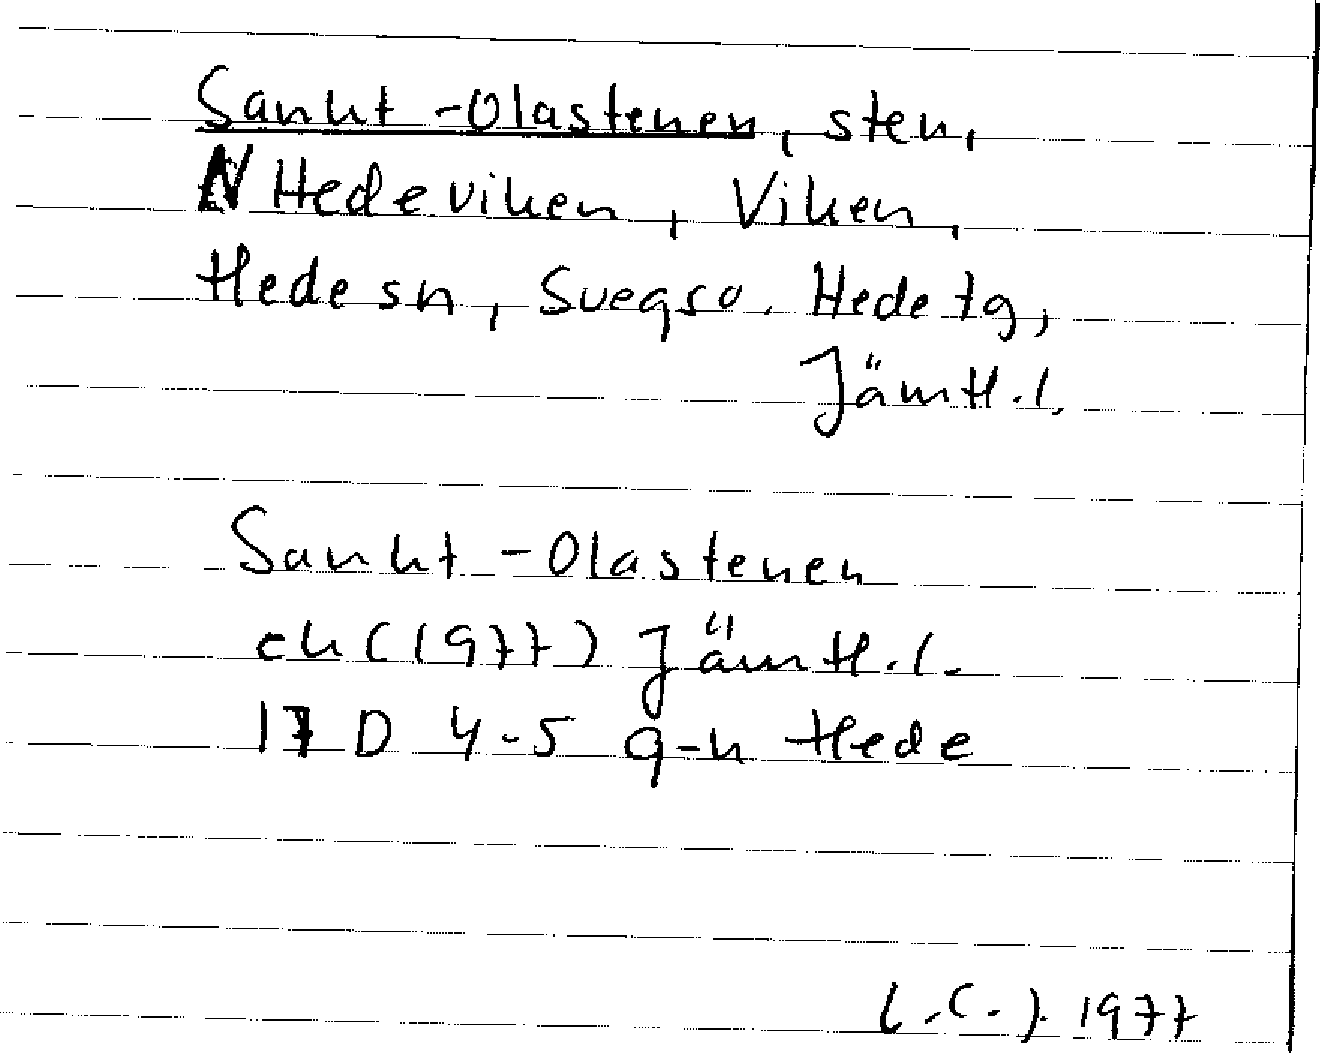 Sankt-Olastenen, sten,
N Hedeviken, Viken,
Hede sn, Svegs o. Hede tg,
Jämtl. l.
Sankt-Olastenen
ek (1977) Jämtl. l.
17 D 4-5 g-h Hede
1977